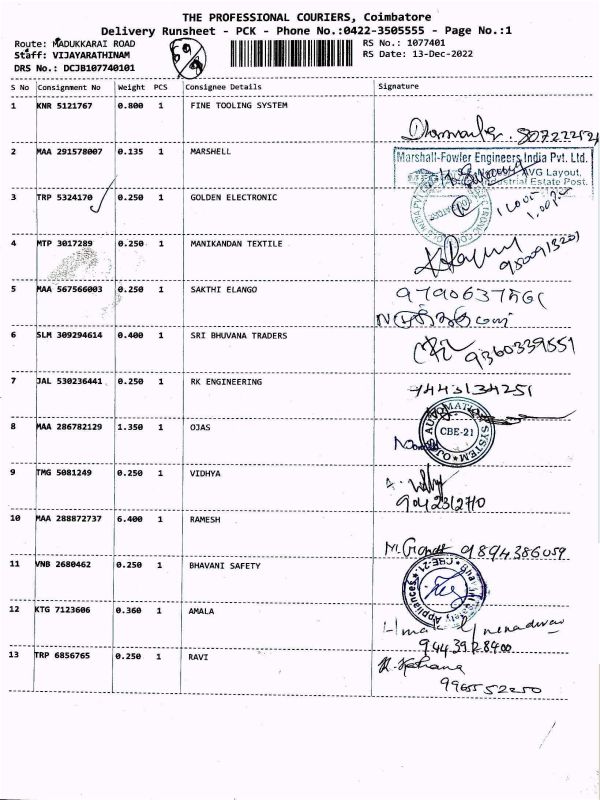 THE PROFESSIONAL COURIERS, Coimbatore
Delivery Runsheet - PCK - Phone No.:0422-3505555 - Page No.:1
Route: MADUKKARAI ROAD
Staff: VIJAYARATHINAM
DRS No.: DCJB107740101
RS No.: 1077401
RS Date: 13-Dec-2022
S No Consignment No Weight PCS Consignee Details Signature
1 KNR 5121767 0.800 1 FINE TOOLING SYSTEM
2 MAA 291578007 0.135 1 MARSHELL
Marshall-Fowler Engineers India Pvt. Ltd.
AVG Layout,
Industrial Estate Post.
3 TRP 5324170 0.250 1 GOLDEN ELECTRONIC
4 MTP 3017289 0.250 1 MANIKANDAN TEXTILE
9500913201
5 MAA 567566003 0.250 1 SAKTHI ELANGO
6 SLM 309294614 0.400 1 SRI BHUVANA TRADERS
9360339551
7 JAL 530236441 0.250 1 RK ENGINEERING
9443134251
8 MAA 286782129 1.350 1 OJAS
OJAS AUTOMATION SYSTEM
CBE-21
9 TMG 5081249 0.250 1 VIDHYA
9042312710
10 MAA 288872737 6.400 1 RAMESH
9894386059
11 VNB 2680462 0.250 1 BHAVANI SAFETY
Bhavani Safety Appliances
CBE-21
12 KTG 7123606 0.360 1 AMALA
9443928400
13 TRP 6856765 0.250 1 RAVI
9965552250